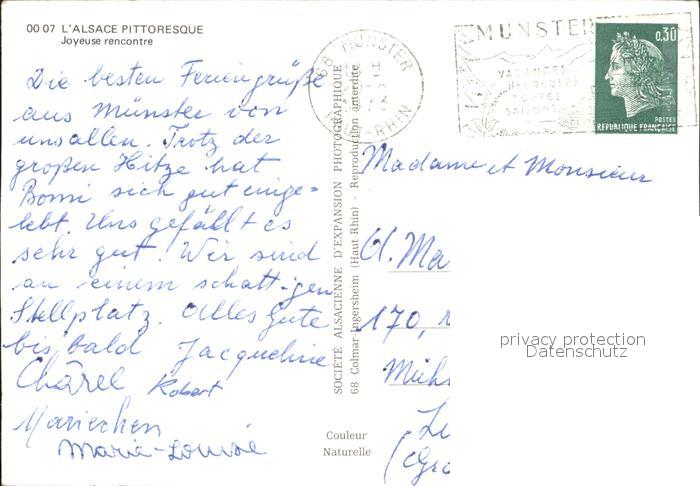 00 07 L'ALSACE PITTORESQUE
Joyeuse rencontre
Die besten Feriengrüße
aus Münster von
uns allen. Trotz der
großen Hitze hat
Bomi sich gut einge=
lebt. Uns gefällt es
sehr gut. Wir sind
an einem schattigen
Stellplatz. Alles Gute
bis bald Jacqueline
Charel Robert
Mariechen
Marie-Louise
SOCIÉTÉ ALSACIENNE D'EXPANSION PHOTOGRAPHIQUE
68 Colmar-Ingersheim (Haut-Rhin) - Reproduction interdite
Couleur
Naturelle
68 MUNSTER
HAUT-RHIN
MUNSTER
VACANCES
HEUREUSES
TOUTES
SAISONS
0,30
POSTES
REPUBLIQUE FRANÇAISE
Madame et Monsieur
A. Ma
170, r
Mühl
(Gr
privacy protection
Datenschutz